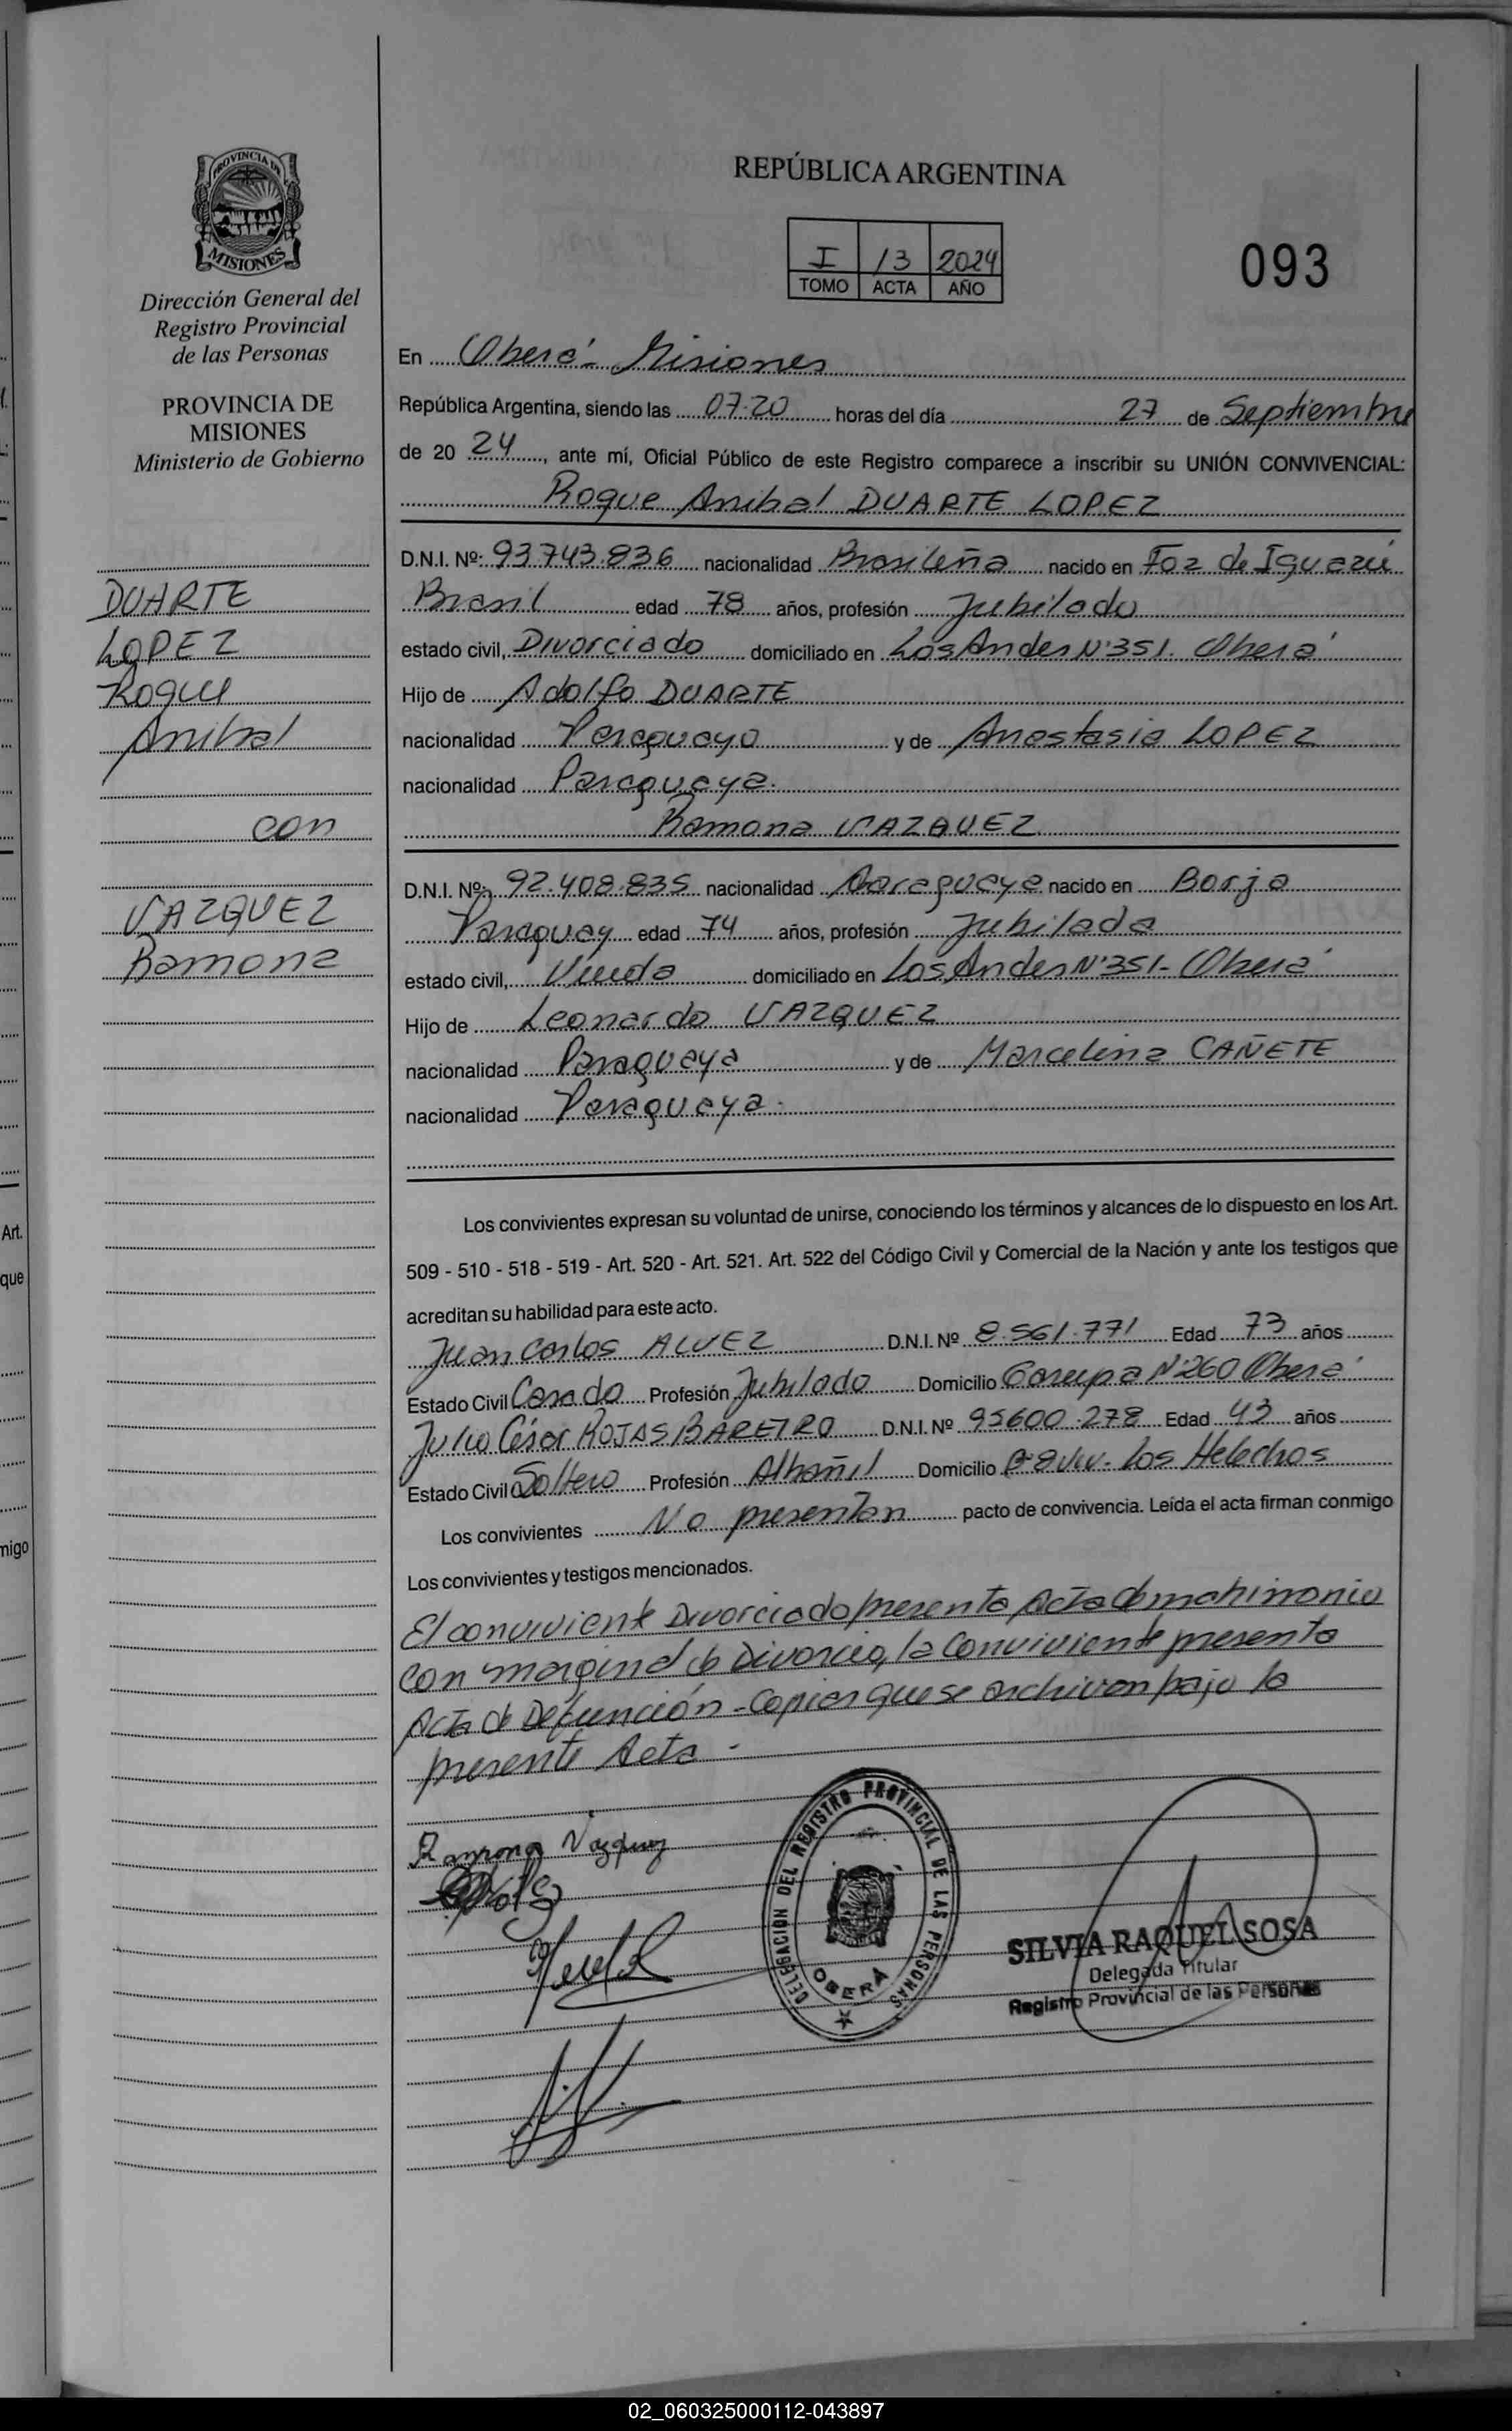 PROVINCIA DE
MISIONES
Dirección General del
Registro Provincial
de las Personas
PROVINCIA DE
MISIONES
Ministerio de Gobierno
DUARTE
LOPEZ
Roque
Anibal
con
VAZQUEZ
Ramona
REPÚBLICA ARGENTINA
I 13 2024
TOMO ACTA AÑO
093
En Oberá - Misiones
República Argentina, siendo las 07:20 horas del día 27 de Septiembre
de 20 24, ante mí, Oficial Público de este Registro comparece a inscribir su UNIÓN CONVIVENCIAL:
Roque Anibal DUARTE LOPEZ
D.N.I. Nº: 93.743.836 nacionalidad Brasileña nacido en Foz de Iguazú
Brasil edad 78 años, profesión Jubilado
estado civil, Divorciado domiciliado en Los Andes Nº351. Oberá
Hijo de Adolfo DUARTE
nacionalidad Paraguayo y de Anastasia LOPEZ
nacionalidad Paraguaya.
Ramona VAZQUEZ
D.N.I. Nº: 92.408.835 nacionalidad Paraguaya nacido en Borja
Paraguay edad 74 años, profesión Jubilada
estado civil, Viuda domiciliado en Los Andes Nº351 - Oberá
Hijo de Leonardo VAZQUEZ
nacionalidad Paraguaya y de Marcelina CAÑETE
nacionalidad Paraguaya.
Los convivientes expresan su voluntad de unirse, conociendo los términos y alcances de lo dispuesto en los Art.
509 - 510 - 518 - 519 - Art. 520 - Art. 521. Art. 522 del Código Civil y Comercial de la Nación y ante los testigos que
acreditan su habilidad para este acto.
Juan Carlos ALVEZ D.N.I. Nº 8.561.771 Edad 73 años
Estado Civil Casado Profesión Jubilado Domicilio Nº260 Oberá
Julio César ROJAS BAREIRO D.N.I. Nº 95600.278 Edad 43 años
Estado Civil Soltero Profesión Albañil Domicilio Bº 8 Viv. Los Helechos
Los convivientes No presentan pacto de convivencia. Leída el acta firman conmigo
Los convivientes y testigos mencionados.
El conviviente Divorciado presenta Acta de matrimonio
con marginal de Divorcio, la Conviviente presenta
Acta de Defunción - Copias que se archivan bajo la
presente Acta -
Ramona Vazquez
DELEGACIÓN DEL REGISTRO PROVINCIAL DE LAS PERSONAS
OBERÁ
SILVIA RAQUEL SOSA
Delegada Titular
Registro Provincial de las Personas
Art.
que
migo
02_060325000112-043897